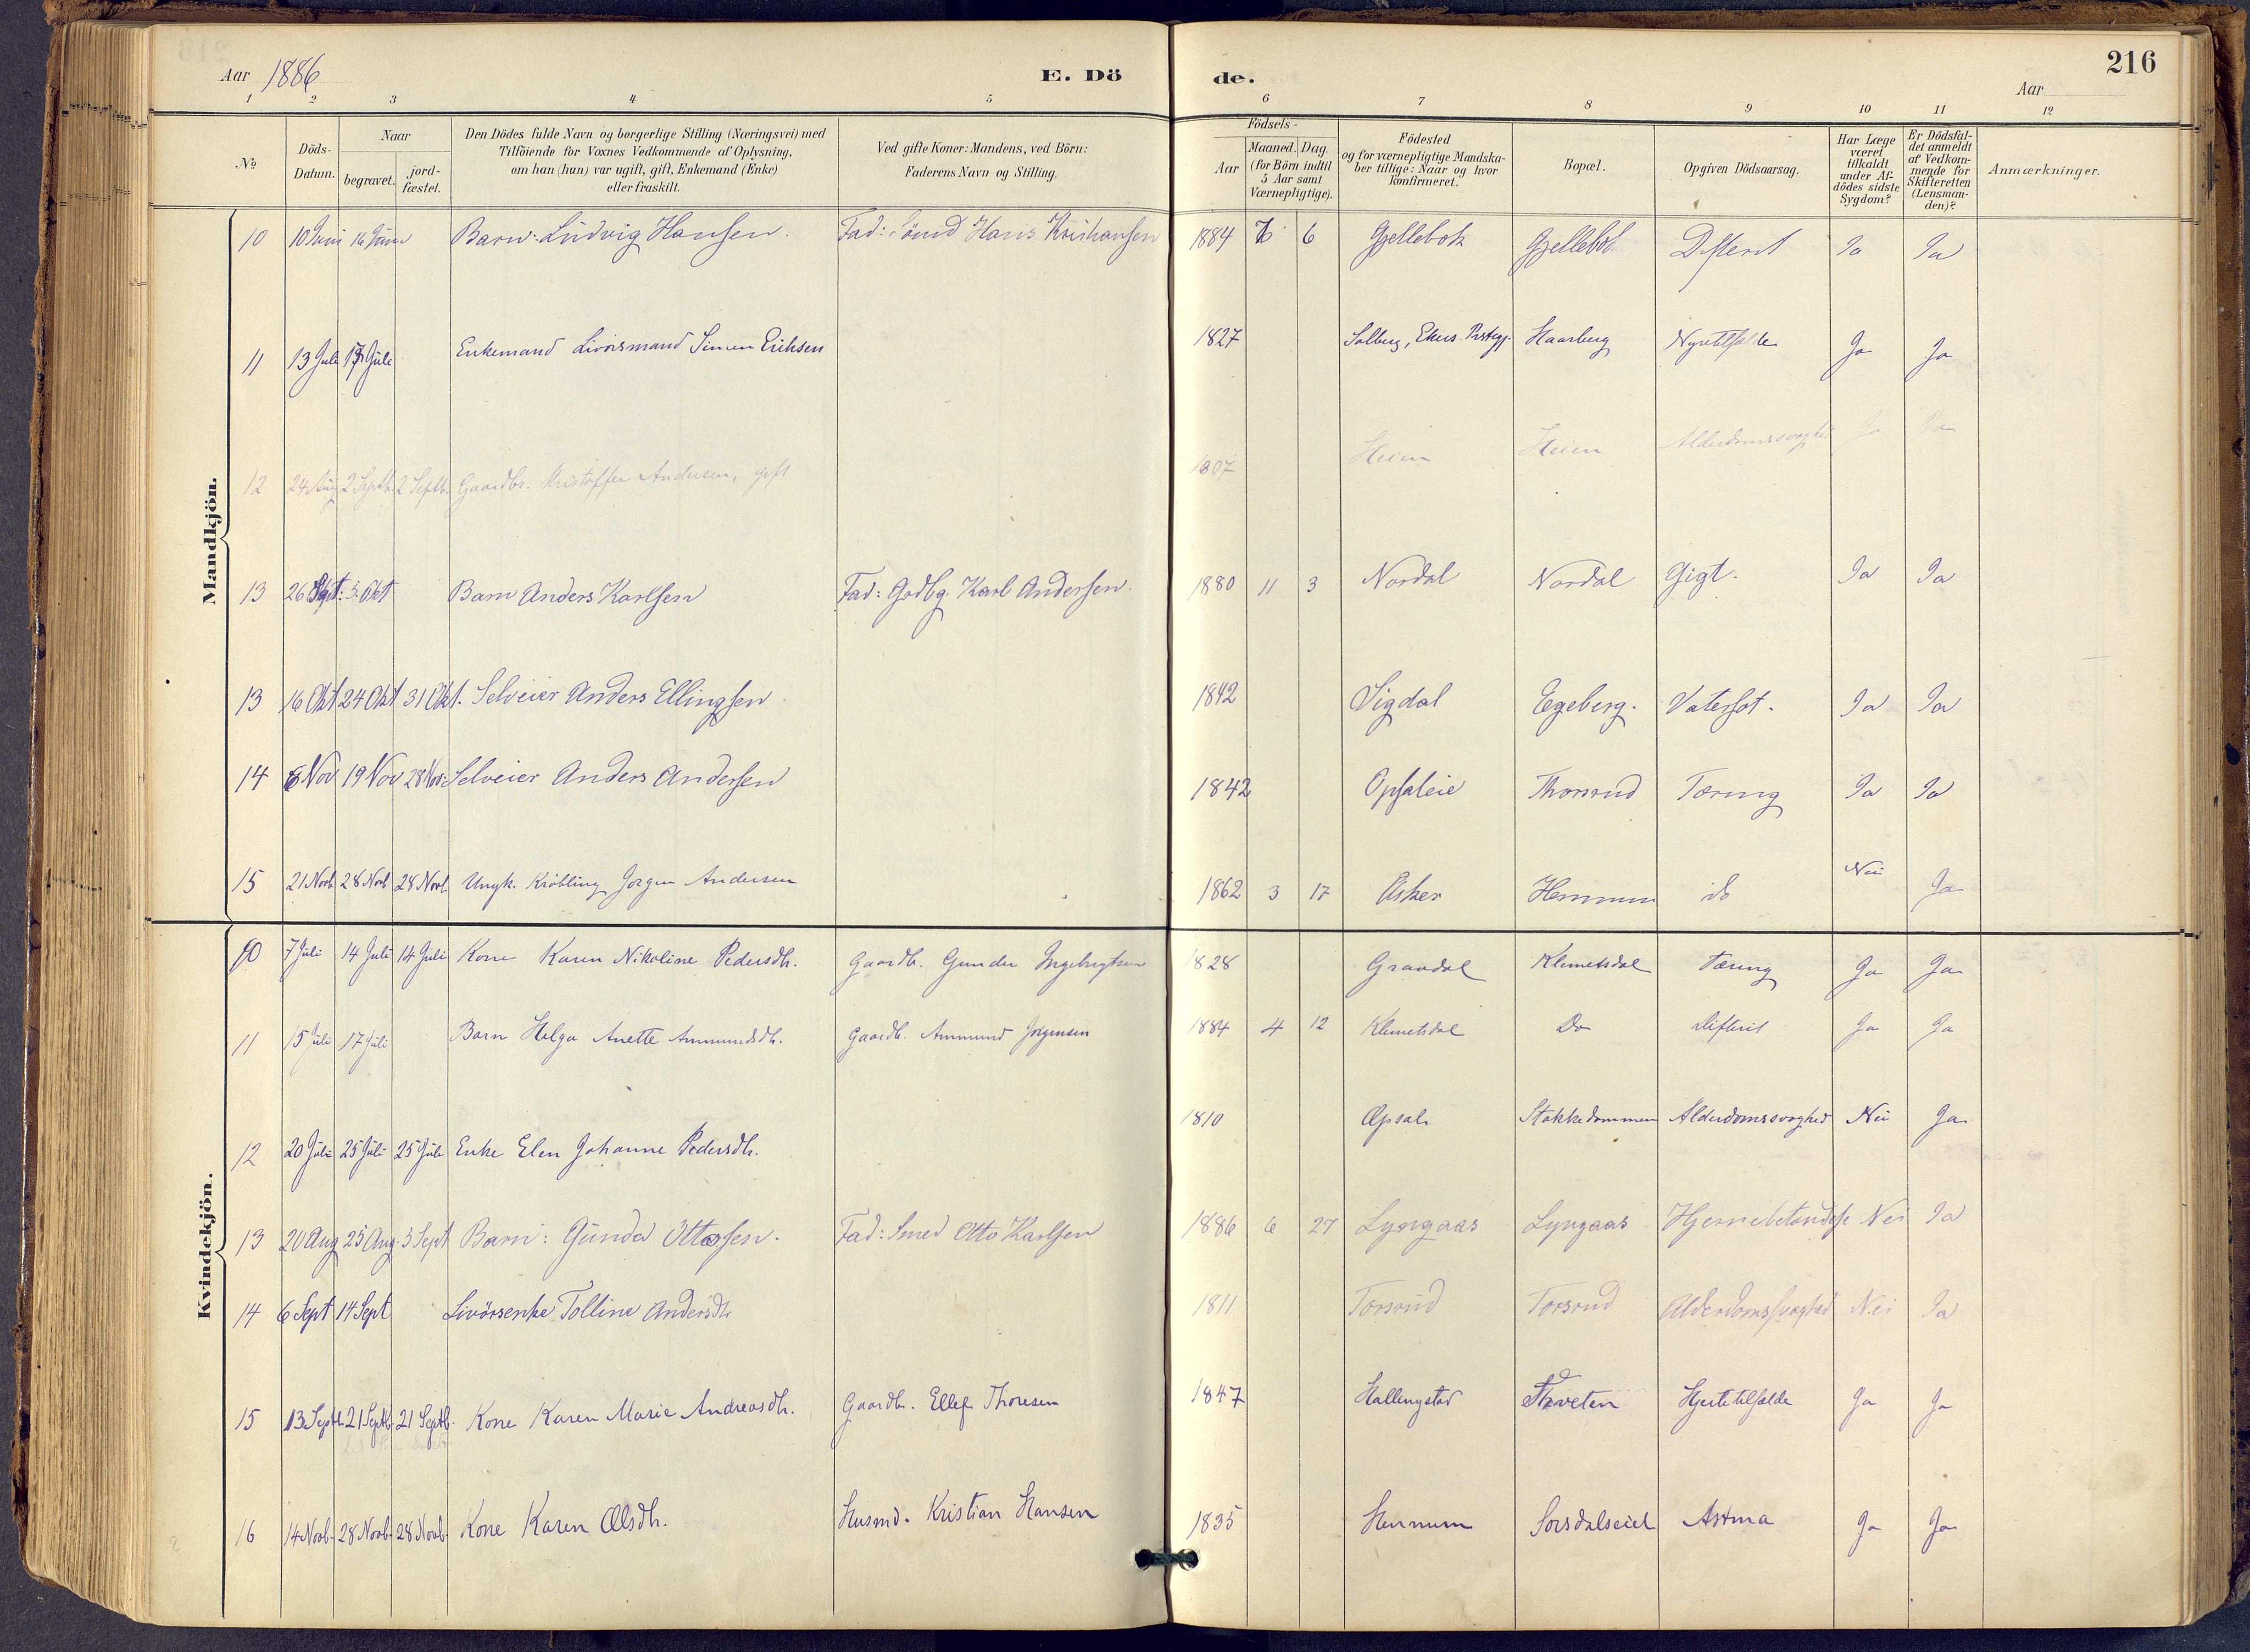 Aar 1886 E. Dö de. Aar 216
1 2 3 4 5 6 7 8 9 10 11 12
No
Döds-Datum.
Naar
begravet.
jord-fæstet.
Den Dödes fulde Navn og borgerlige Stilling (Næringsvei) med
Tilföiende for Voxnes Vedkommende af Oplysning,
om han (hun) var ugift, gift, Enkemand (Enke)
eller fraskilt.
Ved gifte Koner: Mandens, ved Börn:
Faderens Navn og Stilling.
Födsels-
Aar
Maaned. Dag.
(for Börn indtil
5 Aar samt
Værnepligtige).
Födested
og for værnepligtige Mandska-
ber tillige: Naar og hvor
konfirmeret.
Bopæl.
Opgiven Dödsaarsag.
Har Læge
været
tilkaldt
under Af-
dödes sidste
Sygdom?
Er Dödsfal-
det anmeldt
af Vedkom-
mende for
Skifteretten
(Lensman-
den)?
Anmærkninger.
Mandkjön.
10 10 Juni 16 Juni Barn: Ludvig Hansen. Fad: Hans Kristiansen 1884 6 Gjellebek Gjellebek Difterit Ja Ja
11 13 Juli 17 Juli Enkemand Livörsmand Simen Eriksen 1827 Solberg, Ekers Prstegj. Haarberg Nyretilfælde Ja Ja
12 24 Aug 2 Septb. 2 Septb. Gaardbr. Kristoffer Andersen, gift 1807 Heien Heien Alderdomssvaghed Ja Ja
13 26 Sept: 3 Okt Barn Anders Karlsen Fad: Gdbg. Karl Andersen. 1880 11 3 Nordal Nordal Gigt. Ja Ja
13 16 Okt 24 Okt 31 Okt. Selveier Anders Ellingsen 1842 Sigdal Egeberg. Vatersot. Ja Ja
14 6 Nov 19 Nov 28 Nov: Selveier Anders Andersen 1842 Opsaleie Thorsrud Tæring Ja Ja
15 21 Novb 28 Novb 28 Novb. Ungk. Kröbling Jorgen Andersen 1862 3 17 Asker Hennum do Nei Ja
Kvindekjön.
10 7 Juli 14 Juli 14 Juli Kone Karen Nikoline Pedersdtr. Gaardb. Gunder Ingebrigtsen 1828 Gravdal Klemetsdal Tæring Ja Ja
11 15 Juli 17 Juli Barn Helga Anette Ammundsdtr. Gaardb. Ammund Jorgensen 1884 4 12 Klemetsdal Do Difterit Ja Ja
12 20 Juli 25 Juli 25 Juli Enke Elen Johanne Pedersdtr. 1810 Opsal Stokkedammen Alderdomssvaghed Nei Ja
13 20 Aug 25 Aug. 5 Sept Barn: Gunda Ottosen. Fad: Smed Otto Karlsen 1886 6 27 Lyngaas Lyngaas Hjernebetændelse Nei Ja
14 6 Sept 14 Sept Livörsenke Tolline Andersdtr 1811 Torsrud Torsrud Alderdomssvaghed Nei Ja
15 13 Septb. 21 Septb. 21 Septb. Kone Karen Marie Andreasdtr. Gaardb. Ellef Thoresen 1847 Hallingstad Tveten Hjertetilfælde Ja Ja
16 14 Novb. 28 Novb. 28 Novb. Kone Karen Olsdtr. Husmd. Kristian Hansen 1835 Hennum Sorsdalseiet Astma Ja Ja